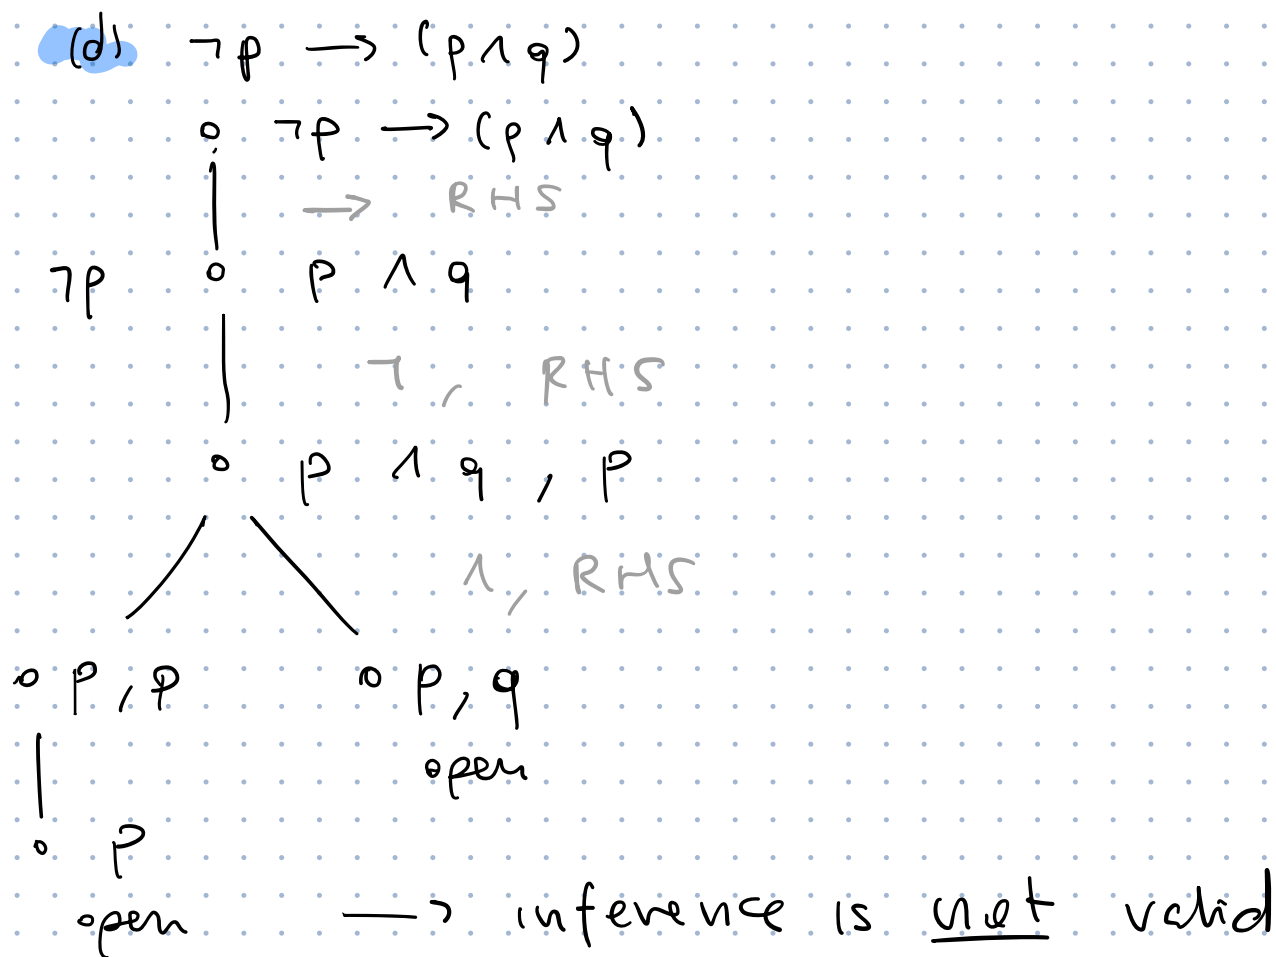 (d) ¬p → (p ∧ q)
∘ ¬p → (p ∧ q)
→ RHS
¬p ∘ p ∧ q
¬, RHS
∘ p ∧ q, p
∧, RHS
∘ p, p ∘ p, q
open
∘ p
open → inference is not valid